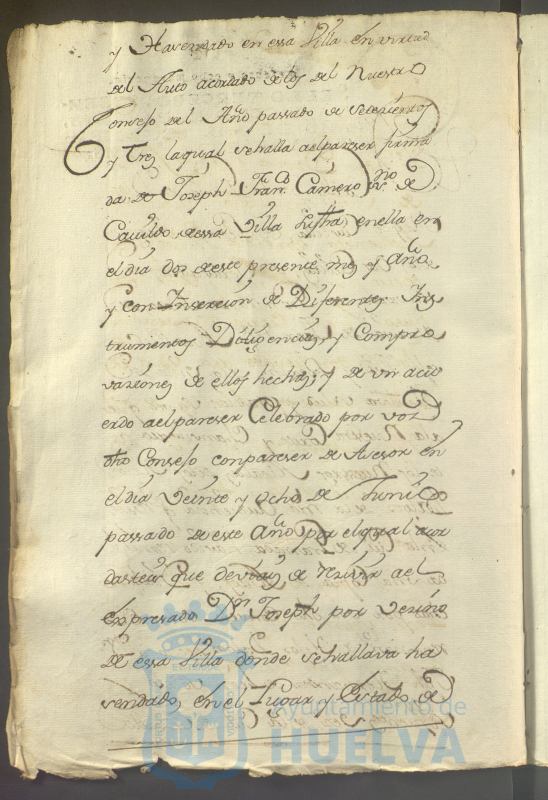 y Havendado en essa Villa en virtud
del Auto acordado de los del Nuestro
Consejo del Año passado de setecientos
y tres laqual sehalla aelpareser firma
da de Joseph Fran.co Camero ss.no de
Cavildo de essa Villa su ftha en ella en
el dia dos de este presente mes y Año
y con Inserсion de Diferentes Ins
trumentos Diligencias, y Compro
vaziones de ellos hechas, y de un acu
erdo aelpareser Celebrado por vos
dho Consejo conpareser de Asesor en
el dia Veinte y Ocho de Junio
passado de este Año por el qual acor
dasteis que deviais de rezivir ael
expresado D.n Joseph por vezino
de essa Villa donde sehallava ha
sendado, en el Lugar y Estado de
Ayuntamiento de
HUELVA